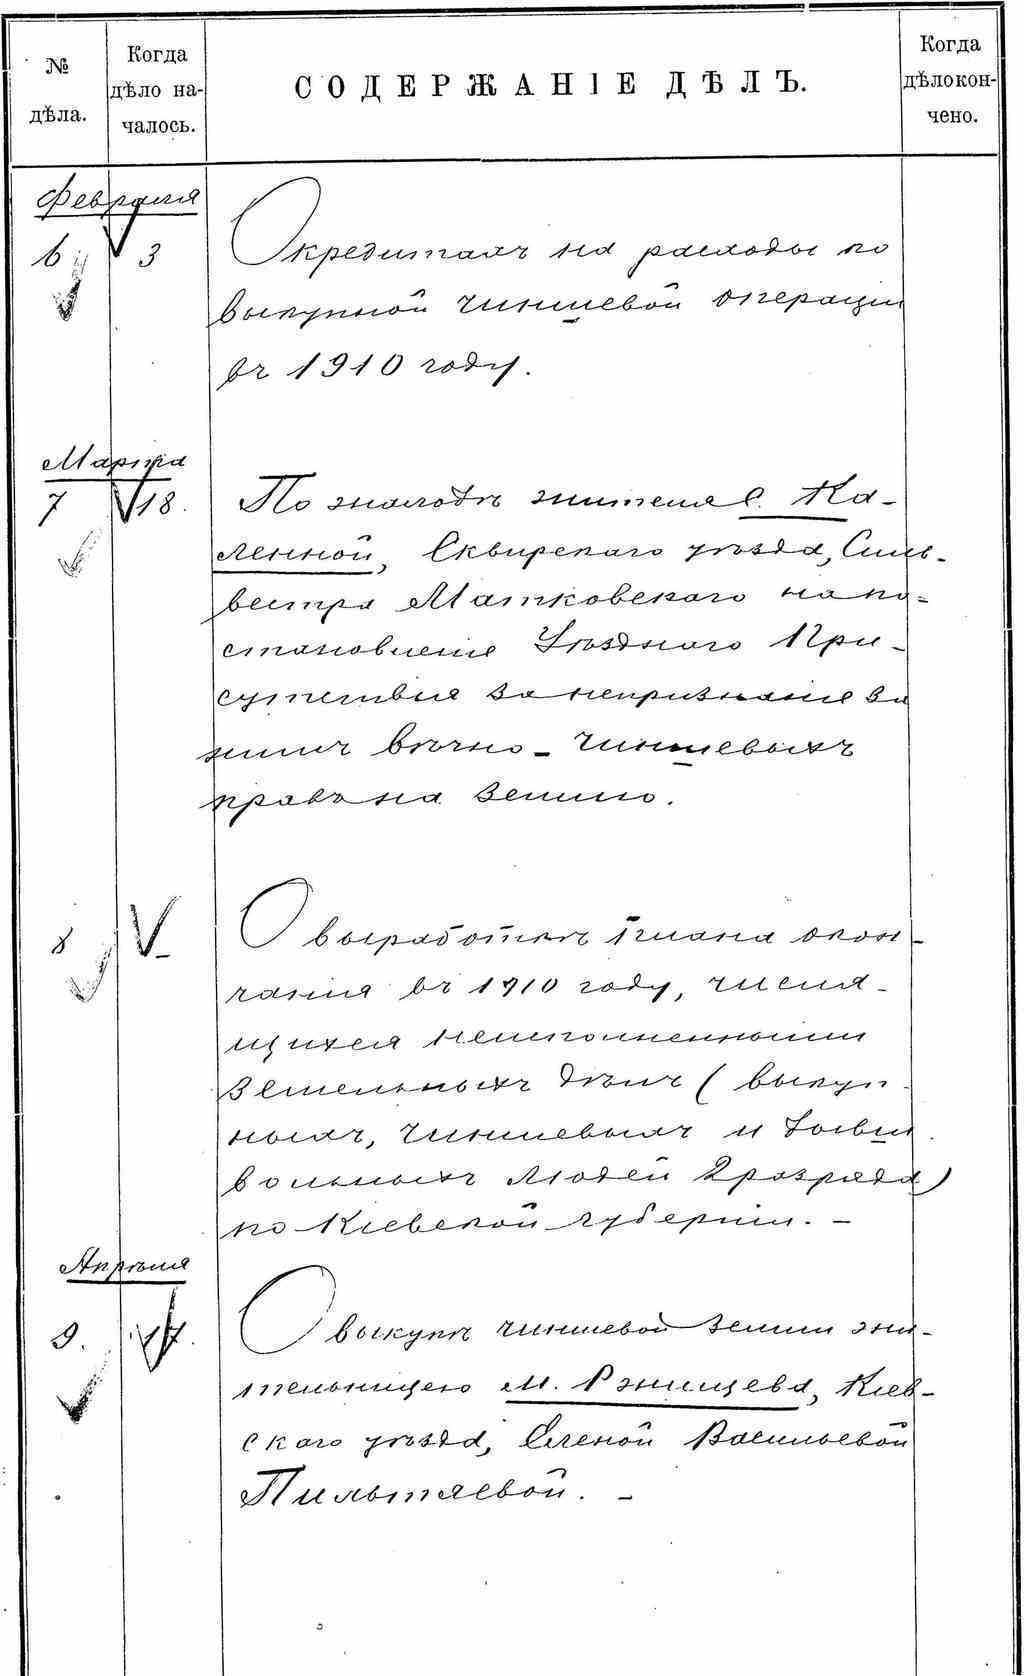 № дѣла.
Когда дѣло на-
чалось.
СОДЕРЖАНІЕ ДѢЛЪ.
Когда дѣло кон-
чено.
Февраля
6 3 О кредитахъ на расходы по
выкупной чиншевой операціи
въ 1910 году.
Марта
7 18. По жалобѣ жителя с. Ка-
ленной, Сквирскаго уѣзда, Силь-
вестра Матковскаго на по-
становленіе Уѣзднаго При-
сутствія за непризнаніе за
нимъ вѣчно-чиншевыхъ
правъ на землю.
8 О выработкѣ плана окон-
чанія въ 1910 году, числя-
щихся неисполненными
земельныхъ дѣлъ (выкуп-
ныхъ, чиншевыхъ и бывш.
вольныхъ людей 2 разряда)
по Кіевской губерніи. –
Апрѣля
9. 17. О выкупѣ чиншевой земли жи-
тельницею м. Ржищева, Кіев-
скаго уѣзда, Еленой Васильевой
Пильтяевой. –